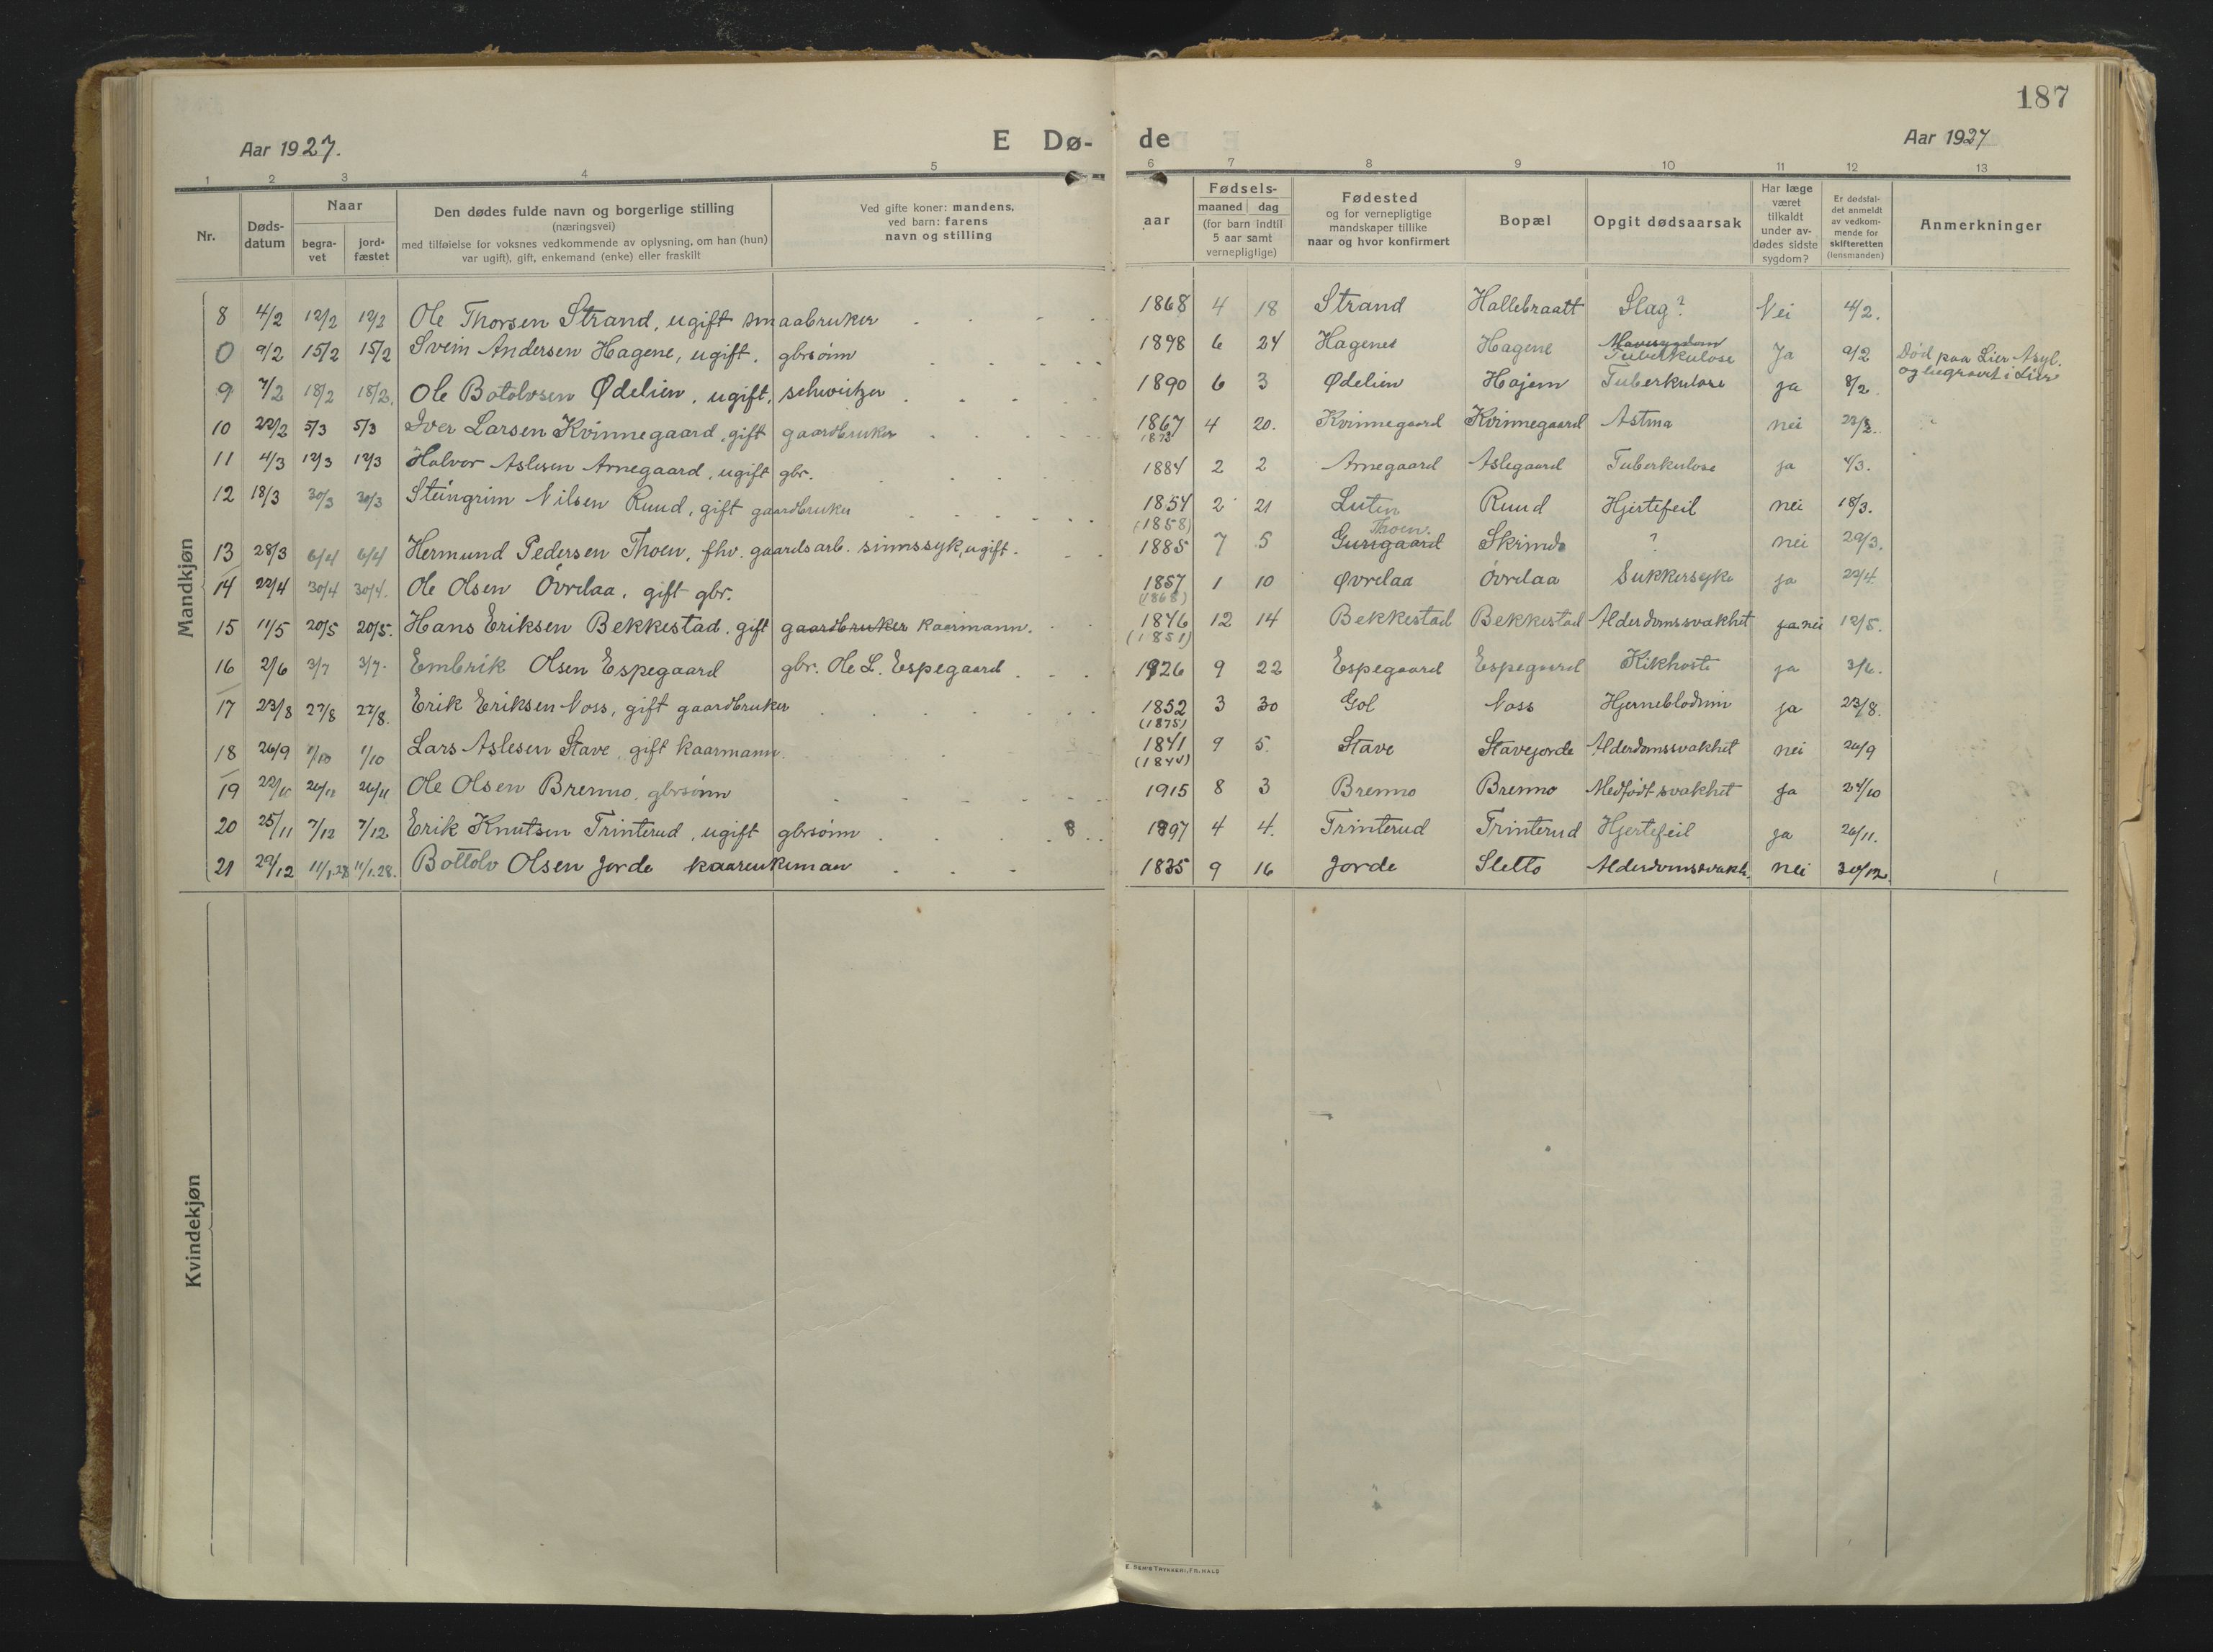 187
Aar 1927.
E Dø-
de
Aar 1927
1 2 3 4 5 6 7 8 9 10 11 12 13
Nr.
Døds-
datum
Naar
begra-
vet
jord-
fæstet
Den dødes fulde navn og borgerlige stilling
(næringsvei)
med tilføielse for voksnes vedkommende av oplysning, om han (hun)
var ugift), gift, enkemand (enke) eller fraskilt
Ved gifte koner: mandens,
ved barn: farens
navn og stilling
aar
Fødsels-
maaned dag
(for barn indtil
5 aar samt
vernepligtige)
Fødested
og for vernepligtige
mandskaper tillike
naar og hvor konfirmert
Bopæl
Opgit dødsaarsak
Har læge
været
tilkaldt
under av-
dødes sidste
sygdom?
Er dødsfal-
det anmeldt
av vedkom-
mende for
skifteretten
(lensmanden)
Anmerkninger
Mandkjøn
8 4/2 12/2 12/2 Ole Thorsen Strand, ugift smaabruker 1868 4 18 Strand Hallebraatt Slag? Nei 4/2.
0 9/2 15/2 15/2 Svein Andersen Hagene, ugift, gbrsönn 1898 6 24 Hagenes Hagene Mavesygdom Tuberkulose Ja 9/2 Död paa Lier Asyl.
og begravet i Lier
9 7/2 18/2 18/2. Ole Botolvsen Ødelien, ugift, schweitzer 1890 6 3 Ødelien Hajem Tuberkulose ja 8/2.
10 22/2 5/3 5/3 Iver Larsen Kvinnegaard, gift gaardbruker 1867 4 20. Kvinnegaard Kvinnegaard Astma nei 22/2.
1873
11 4/3 12/3 12/3 Halvor Aslesen Arnegaard, ugift gbr. 1884 2 2 Arnegaard Aslegaard Tuberkulose ja 4/3.
12 18/3 30/3 30/3 Steingrim Nilsen Ruud, gift gaardbruker 1854 2 21 Luten Ruud Hjertefeil nei 18/3.
(1858)
Thoen.
13 28/3 6/4 6/4 Hermund Pedersen Thoen, fhv. gaardsarb. sinnssyk, ugift. 1885 7 5 Gurigaard Skrindo ? nei 29/3.
14 22/4 30/4 30/4. Ole Olsen Övrelaa, gift gbr. 1857 1 10 Øvrelaa Övrelaa Sukkersyke ja 22/4.
(1868)
15 11/5 20/5 20/5. Hans Eriksen Bekkestad, gift gaardbruker kaarmann. 1846 12 14 Bekkestad Bekkestad Alderdomssvakhet ja nei 12/5.
(1851)
16 2/6 3/7 3/7. Embrik Olsen Espegaard gbr. Ole L. Espegaard 1926 9 22 Espegaard Espegaard Kikhoste ja 3/6.
17 23/8 27/8 27/8. Erik Eriksen Noss, gift gaardbruker 1852 3 30 Gol Noss Hjerneblödnin ja 23/8.
(1875)
18 26/9 1/10 1/10 Lars Aslesen Stave, gift kaarmann. 1841 9 5. Stave Stavejorde Alderdomssvakhet nei 26/9
(1844)
19 Ole Olsen Brenno, gbrsönn 1915 8 3 Brenno Brenno Medfödt svakhet ja 24/10
20 25/11 7/12 7/12 Erik Knutsen Trinterud, ugift gbrsönn 8 1897 4 4. Trinterud Trinterud Hjertefeil ja 26/11.
21 29/12 11/1.28 11/1.28. Bottolv Olsen Jorde kaarenkeman 1835 9 16 Jorde Sletto Alderdomssvakh. nei 30/12.
Kvindekjøn
E. SEM'S TRYKKERI, FR.HALD